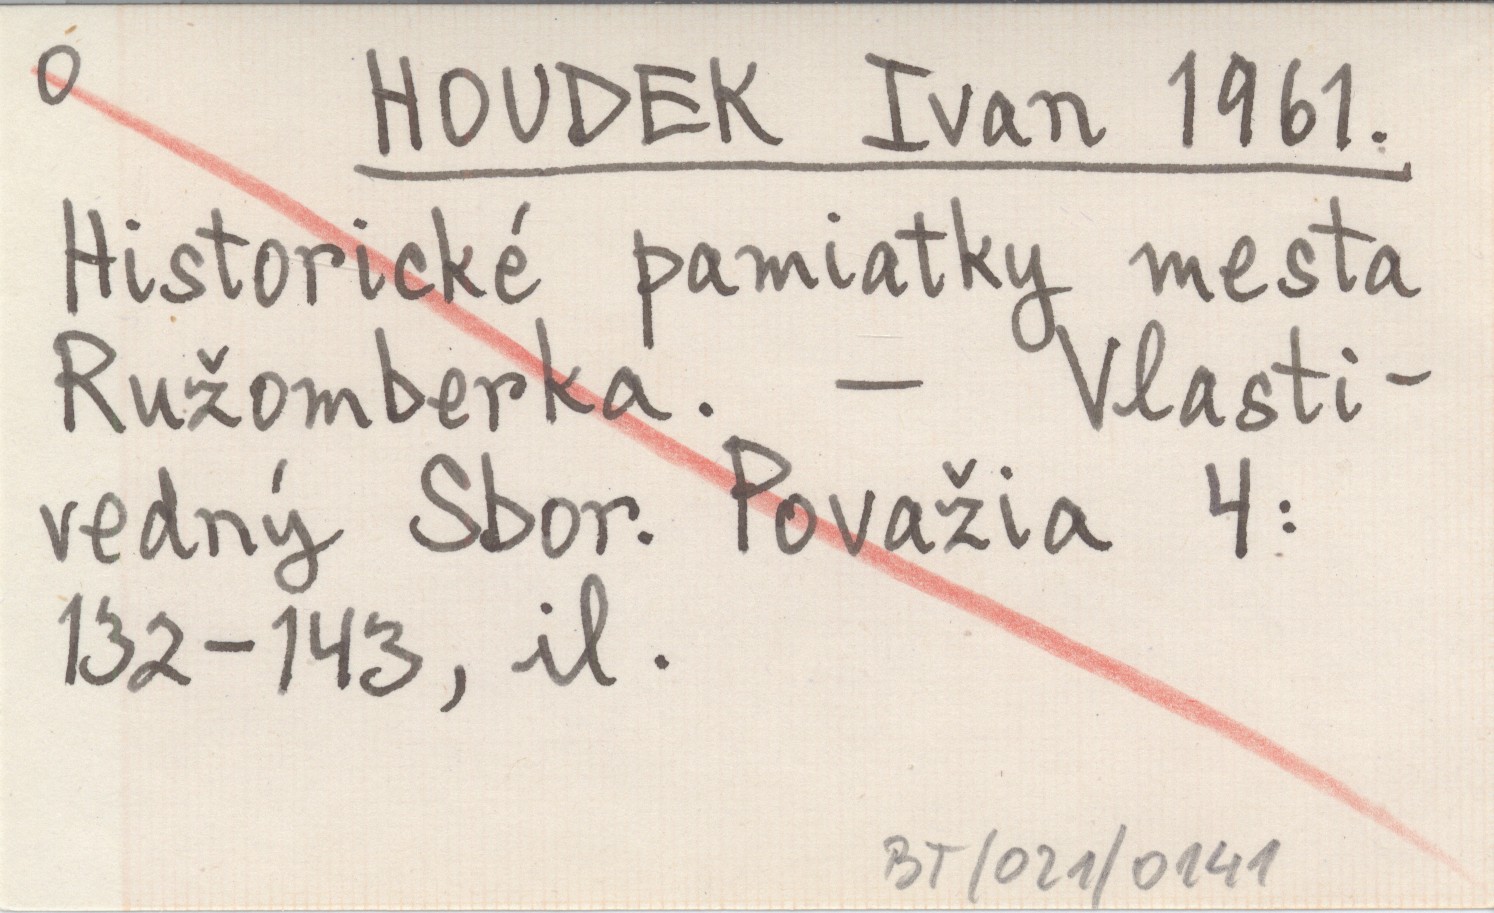 O
HOUDEK Ivan 1961.
Historické pamiatky mesta
Ružomberka. — Vlasti-
vedný Sbor. Považia 4:
132-143, il.
BT/021/0141